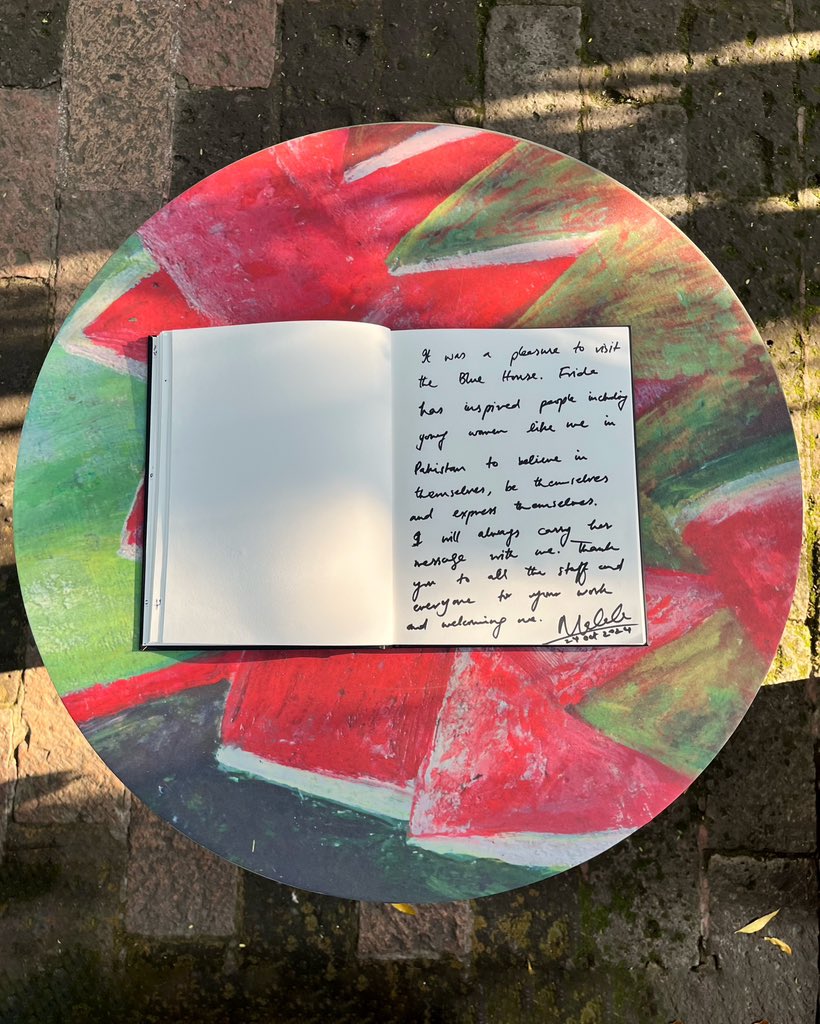 It was a pleasure to visit
the Blue House. Frida
has inspired people including
young women like me in
Pakistan to believe in
themselves, be themselves
and express themselves.
I will always carry her
message with me. Thank
you to all the staff and
everyone for your work
and welcoming me. Malala
24 Oct 2024